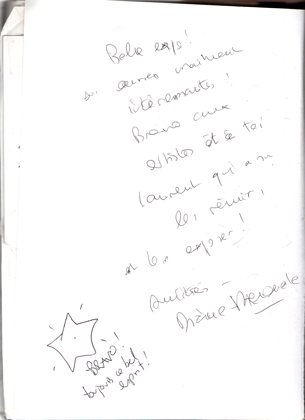 Belle expo!
des œuvres vraiment
intéressantes!
Bravo aux
artistes et à toi
Laurent qui a su
les réunir,
et les exposer!
Amitiés -
BRAVO!
toujours ce bel
esprit!